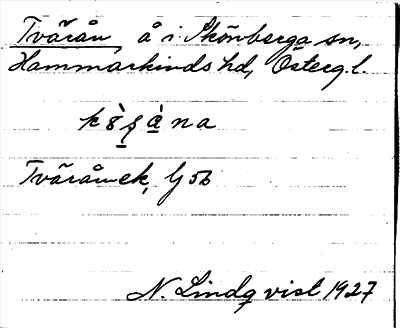 Tvärån, å i Skönberga sn,
Hammarkinds hd, Österg. l.
Tväråns ek, G 5b
N. Lindqvist 1927